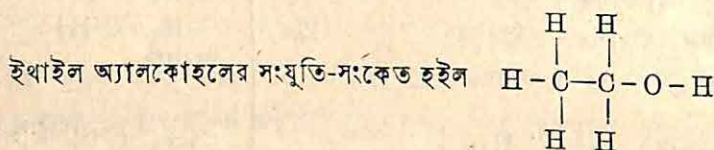 H H
| |
ইথাইল অ্যালকোহলের সংযুতি-সংকেত হইল H-C—C-O-H
| |
H H